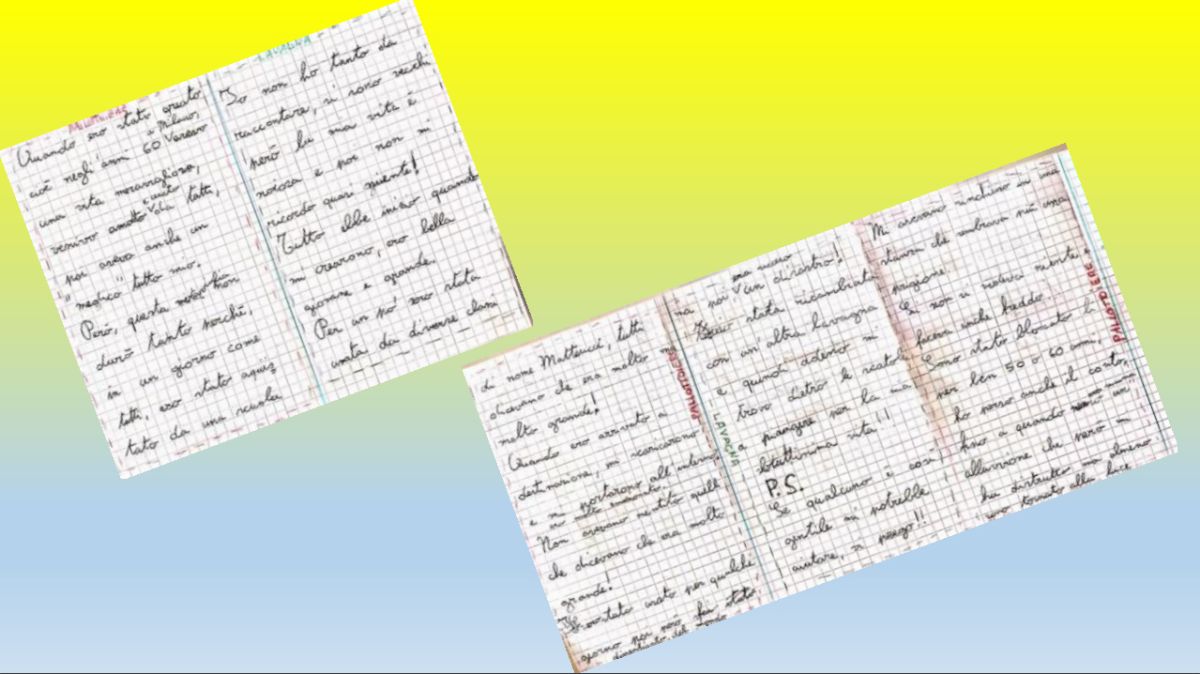 Quando ero stato creato,
cioè negli anni 60 a Milano, vivevo
una vita meravigliosa,
venivo usato da tutti,
poi avevo anche un
"medico" tutto mio.
Però, questa non
durò tanto perché,
in un giorno come
tutti, ero stato aquis
tato da una scuola
LAVAGNA
Io non ho tanto da
raccontare, si sono vecchi
però la mia vita è
noiosa e poi non mi
ricordo quasi niente!
Tutto ebbe inizio quando
mi crearono, ero bella
giovane e grande.
Per un po' ero stata
usata da diverse classi
di nome Matteucci, tutti
dicevano che era molto ma
molto grande!
Quando ero arrivato a
destinazione, mi scaricarono
e mi portarono all'interno
Non avevano mentito quelli
che dicevano che era molto
grande!
stato usato per qualche
giorno poi però fui stato
dimenticato dal mondo
PALLOTTOLIERE
LAVAGNA
poi era successo un disastro!
stata ricambiata
con un'altra lavagna
e quindi adesso mi
trovo dietro le
a piangere per la mia
bruttissima vita!!
P.S.
Se qualcuno è così
gentile mi potrebbe
aiutare, vi prego!!
Mi avevano rinchiuso in una
stanza che sembrava più una
prigione.
non si vedeva niente e
faceva anche freddo.
Sono stato bloccato lì
per ben 50 o 60 anni,
ho perso anche il conto,
fino a quando un
alluvione che però mi
ha distrutto ma almeno
sono tornato alla luce
PALLOTTOLIERE